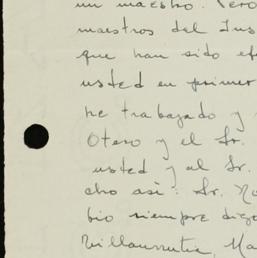 un maestro. Pero
maestros del Ins
que han sido ef
usted en primer
he trabajado y
Otero y el Sr.
usted y al Sr.
cho así: Sr. No
bio siempre digo
Villaurrutia, Ma